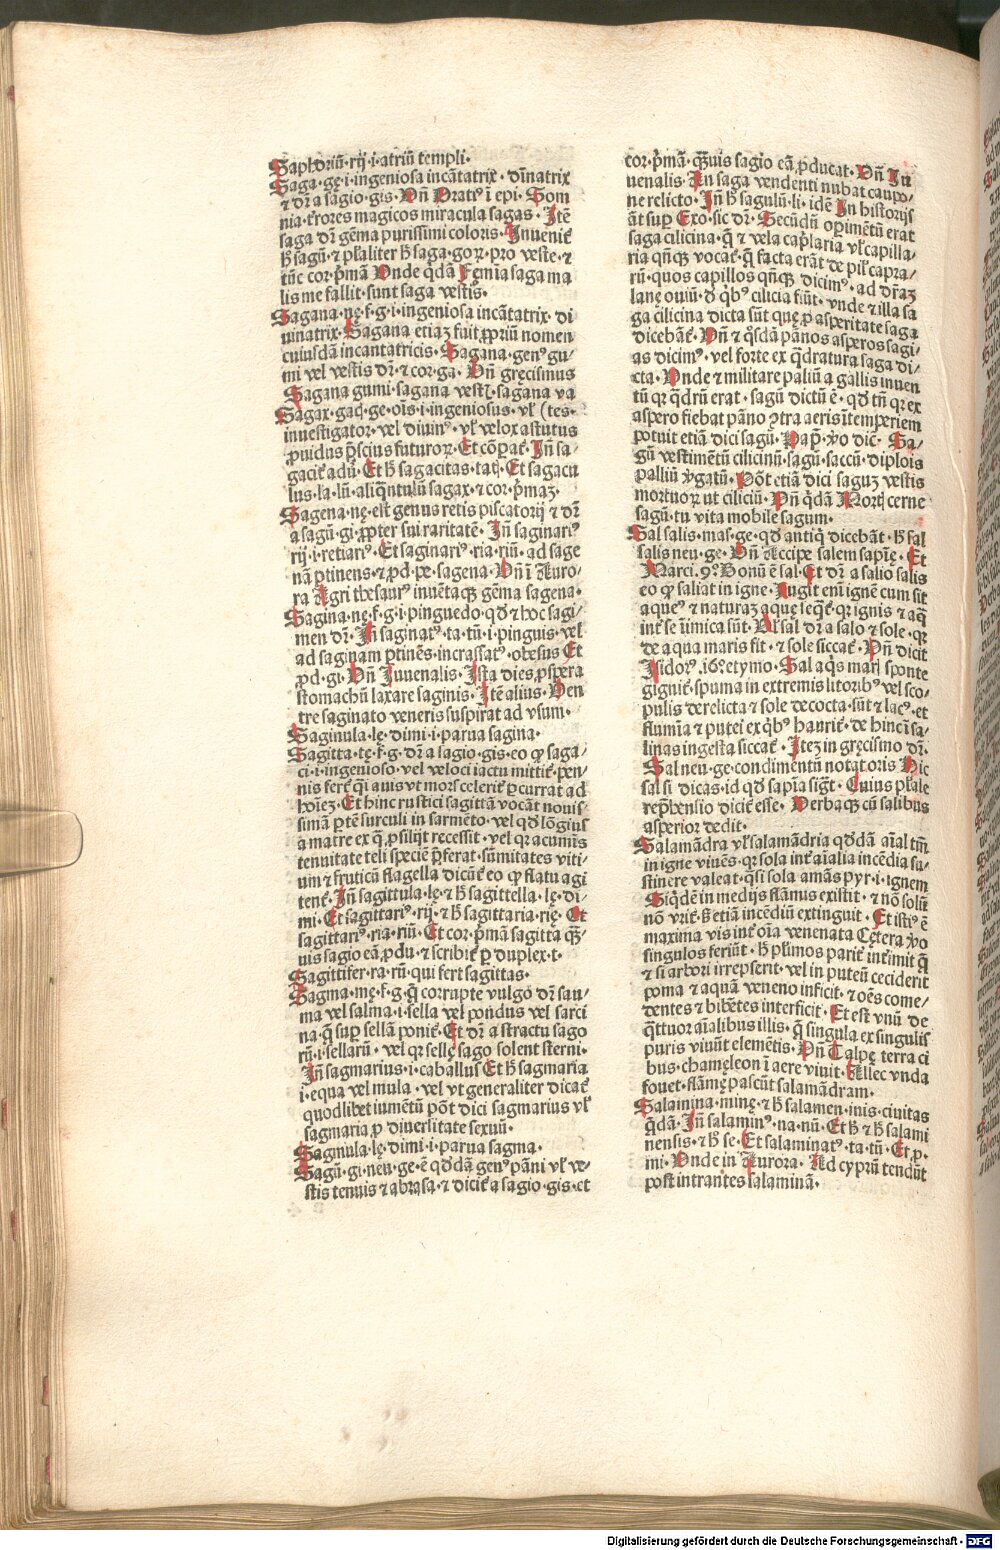 Saphoriū·rij·i·atriū templi·
Saga·gę·i·ingeniosa incātatrix·diuinatrix
⁊ dr̄ a sagio·gis·Vn̄ Oratiꝰ ī epi·Som
nia t̾rores magicos miracula sagas·Itē
saga dr̄ gēma purissimi coloris·Inuenit̾
h̄ sagū·⁊ pl̾aliter h̄ saga·goꝝ·pro veste·⁊
tūc cor·p̄mā Vnde q̄dā Femīa saga ma
lis me fallit·sunt saga vestis·
Sagana·nę·f·g·i·ingeniosa incātatrix·di
uinatrix·Sagana etiaz fuit ꝓpriū nomen
cuiusdā incantatricis·Sagana·genꝰ gu/
mi vel vestis dr̄·⁊ cor·ga·Vn̄ gręcismus
Sagana gumi·sagana vest̾·sagana va
Sagax·gac̾·ge·oīs·i·ingeniosus·vl̾ (tes·
inuestigator·vel diuinꝰ·vl̾ velox astutus
ꝓuidus p̄scius futuroꝝ·Et cōpat̾·In̄ sa/
gacit̾ adū·Et h̄ sagacitas·tat̾·Et sagacu
lus·la·lū·aliq̄ntulū sagax·⁊ cor·p̄maz·
Sagena·nę·est genus retis piscatorij ⁊ dr̄
a sagū·gi·ꝓpter sui raritatē·In̄ saginariꝰ
rij·i·retiariꝰ·Et saginariꝰ·ria·riū·ad sage
nā ꝑtinens·⁊ ꝓd·pe·sagena·Vn̄ ī Auro/
ra Agri thesaurꝰ inuētaqꝫ gēma sagena·
Sagina·nę·f·g·i·pinguedo·qd̾ ⁊ hoc sagi/
men dr̄·In̄ saginatꝰ·ta·tū·i·pinguis·vel
ad saginam ꝑtinēs·incrassatꝰ·obesus Et
ꝓd·gi·Vn̄ Iuuenalis·Ista dies ꝓspera
stomachū laxare saginis·Itē alius·Ven
tre saginato veneris suspirat ad vsum·
Saginula·lę·dimi·i·parua sagina·
Sagitta·tę·f·g·dr̄ a sagio·gis·eo ꝙ saga/
ci·i·ingenioso·vel veloci iactu mittit̾·pen/
nis fert̾ q̄i auis vt mors celerit̾ ꝑcurrat ad
hoīez·Et hinc rustici sagittā vocāt nouis/
simā ꝑtē surculi in sarmēto·vel qd̾ lōgius
a matre ex q̄ ꝓsilijt recessit·vel qꝛ acumīs
tenuitate teli speciē p̄ferat·sūmitates viti/
um ⁊ fruticū flagella dicūt̾ eo ꝙ flatu agi
tent̾·In̄ sagittula·lę·⁊ h̄ sagittella·lę·di/
mi·Et sagittariꝰ·rij·⁊ h̄ sagittaria·rię·Et
sagittariꝰ·ria·riū·Et cor·p̄mā sagitta q̄ꝫ/
uis sagio eā ꝓdu·⁊ scribit̾ ꝑ duplex·t·
Sagittifer·ra·rū·qui fert sagittas·
Sagma·mę·f·g·q̄ corrupte vulgo dr̄ sau/
ma vel salma·i·sella vel pondus vel sarci
na·q̄ suꝑ sellā ponit̾·Et dr̄ a stractu sago
rū·i·sellarū·vel qꝛ sellę sago solent sterni·
In̄ sagmarius·i·caballus Et h̄ sagmaria
i·equa vel mula·vel vt generaliter dicat̾
quodlibet iumētū pōt dici sagmarius vl̾
sagmaria ꝓ diuersitate sexuū·
Sagmula·lę·dimi·i·parua sagma·
Sagū·gi·neu·ge·ē qd̾dā genꝰ pāni vl̾ ve/
stis tenuis ⁊ abrasa·⁊ dicit̾ a sagio·gis·et
cor·p̄mā·q̄ꝫuis sagio eā ꝓducat·Vn̄ Iu
uenalis·In saga vendenti nubat caupo/
ne relicto·In̄ h̄ sagulū·li·idē In historijs
āt suꝑ Exo·sic dr̄·Secūdū opimētū erat
saga cilicina·q̄ ⁊ vela capl̾aria vl̾ capilla/
ria qn̄qꝫ vocat̾·q̄ facta erāt de pil̾ capra/
rū·quos capillos qn̄qꝫ dicimꝰ·ad dr̄az
lanę ouiū·d̾ q̄bꝰ cilicia fiūt·vnde ⁊ illa sa
ga cilicina dicta sūt quę ꝓ asperitate saga
dicebāt̾·Vn̄ ⁊ q̄sdā pānos asperos sagi/
as dicimꝰ·vel forte ex q̄dratura saga di/
cta·Vnde ⁊ militare paliū a gallis inuen
tū qꝛ q̄drū erat·sagū dictū ē·qd̾ tn̄ qꝛ ex
aspero fiebat pāno ꝯtra aeris ītemperiem
potuit etiā dici sagū·Pap̄·v̾o dic̾·Sa/
gū vestimētū cilicinū·sagū·saccū·diplois
palliū v̾gatū·Pōt etiā dici saguz vestis
mortuoꝝ ut ciliciū·Vn̄ q̄dā Morti cerne
sagū·tu vita mobile sagum·
Sal salis·mas·ge·qd̾ antiq̄ dicebāt·h̄ sal
salis neu·ge·Vn̄ Accipe salem sapię·Et
Marci·9º·Bonū ē sal·Et dr̄ a salio salis
eo ꝙ saliat in igne·Fugit enī ignē cum sit
aqueꝰ ⁊ naturaz aquę seq̄t̾·qꝛ ignis ⁊ aq̄
int̾ se īimica sūt·Vl̾ sal dr̄ a salo ⁊ sole·qꝛ
de aqua maris fit·⁊ sole siccat̾·Vn̄ dicit
Isidorꝰ·16º·etymo·Sal aq̄s mar̾ sponte
gignit̾·spuma in extremis litoribꝰ vel sco/
pulis derelicta ⁊ sole decocta·sūt ⁊ lacꝰ·et
flumīa ⁊ putei ex q̄bꝰ haurit̾·de hinc ī sa/
linas ingesta siccat̾·Itez in gręcismo dr̄·
Sal neu·ge·condimentū notat oris Hic
sal si dicas·id qd̾ sapīa sigt̄·Cuius pl̾ale
rep̄hensio dicit̾ esse·Verbaqꝫ cū salibus
asperior dedit·
Salamādra vl̾ salamādria qd̾dā aīal tm̄
in igne viuēs·qꝛ sola int̾ aīalia incēdia su/
stinere valeat·q̄si sola amās pyr·i·ignem
Siq̄dē in medijs flāmus existit·⁊ nō solū
nō vrit̾·s̄ etiā incēdiū extinguit·Et istiꝰ ē
maxima vis int̾ oīa venenata Cętera v̾o
singulos feriūt·h̄ pl̾imos parit̾ int̾imit q̄
⁊ si arbori irrepserit·vel in puteū ceciderit
poma ⁊ aquā veneno inficit·⁊ oēs come/
dentes ⁊ bibētes interficit·Et est vnū de
q̄ttuor aīalibus illis·q̄ singula ex singulis
puris viuūt elemētis·Vn̄ Talpę terra ci
bus·chamęleon ī aere viuit·Allec vnda
fouet·flāmę pascūt salamādram·
Salamina·minę·⁊ h̄ salamen·inis·ciuitas
q̄dā·In̄ salaminꝰ·na·nū·Et h̄ ⁊ h̄ salami
nensis·⁊ h̄ se·Et salaminatꝰ·ta·tū·Et ꝓ·
mi·Vnde in Aurora·Ad cyprū tendūt
post intrantes salaminā·
Digitalisierung gefördert durch die Deutsche Forschungsgemeinschaft · DFG